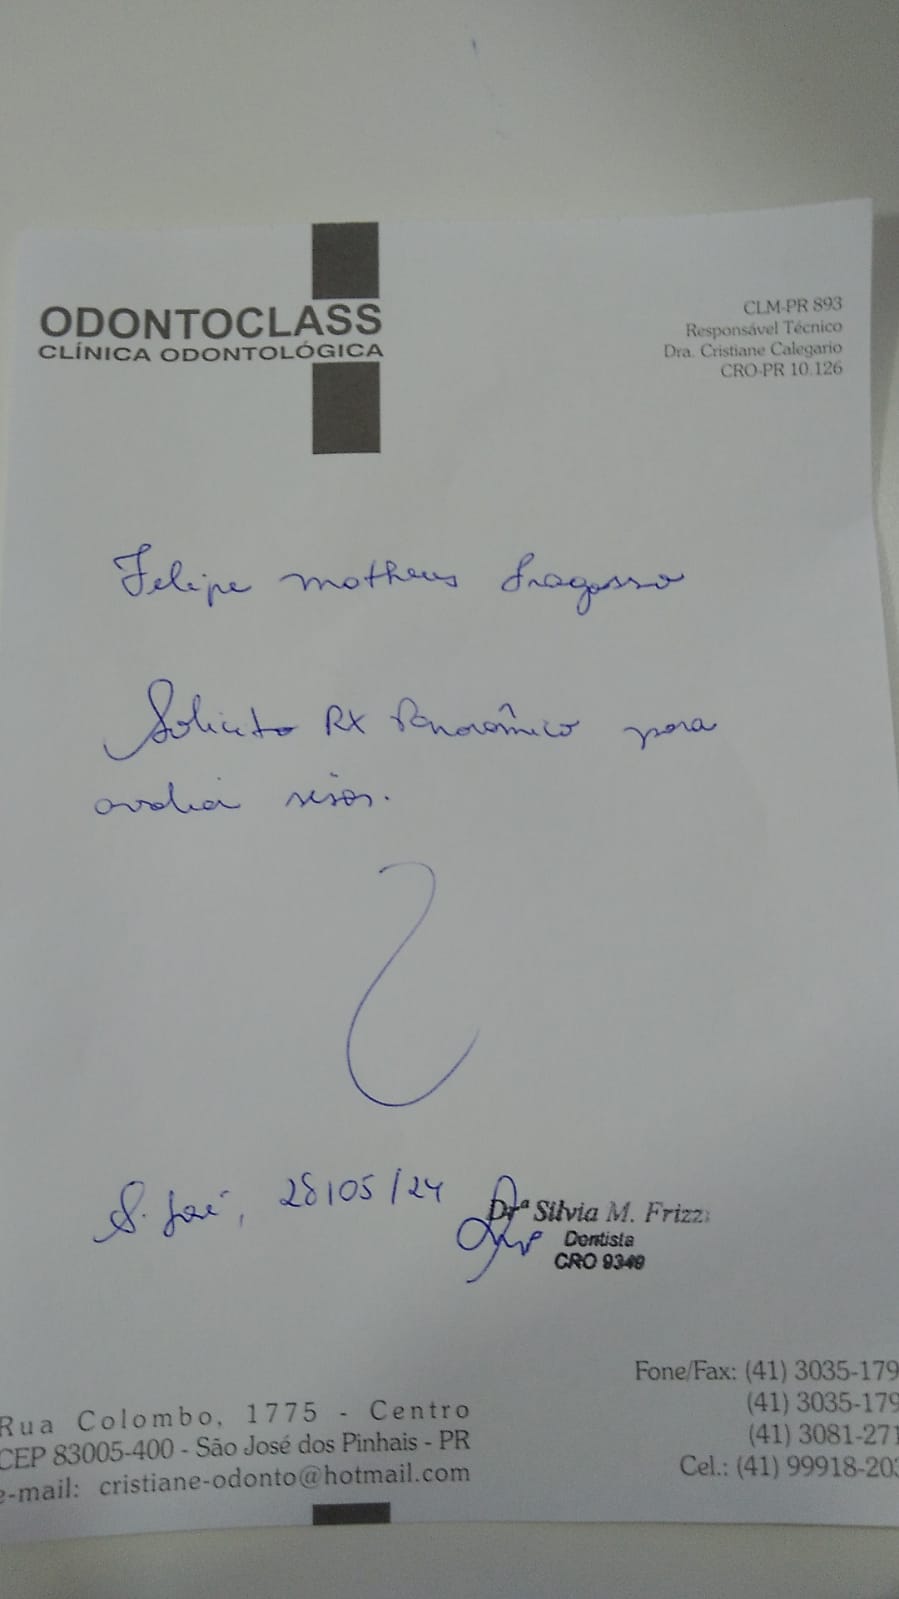 ODONTOCLASS
CLÍNICA ODONTOLÓGICA
CLM-PR 893
Responsável Técnico
Dra. Cristiane Calegario
CRO-PR 10.126
Felipe Matheus Fragosso
Solicito RX Panorâmico para
avaliar sisos.
S. José, 28/05/24
Drª Silvia M. Frizz
Dentista
CRO 9349
Rua Colombo, 1775 - Centro
CEP 83005-400 - São José dos Pinhais - PR
e-mail: cristiane-odonto@hotmail.com
Fone/Fax: (41) 3035-179
(41) 3035-179
(41) 3081-271
Cel.: (41) 99918-203